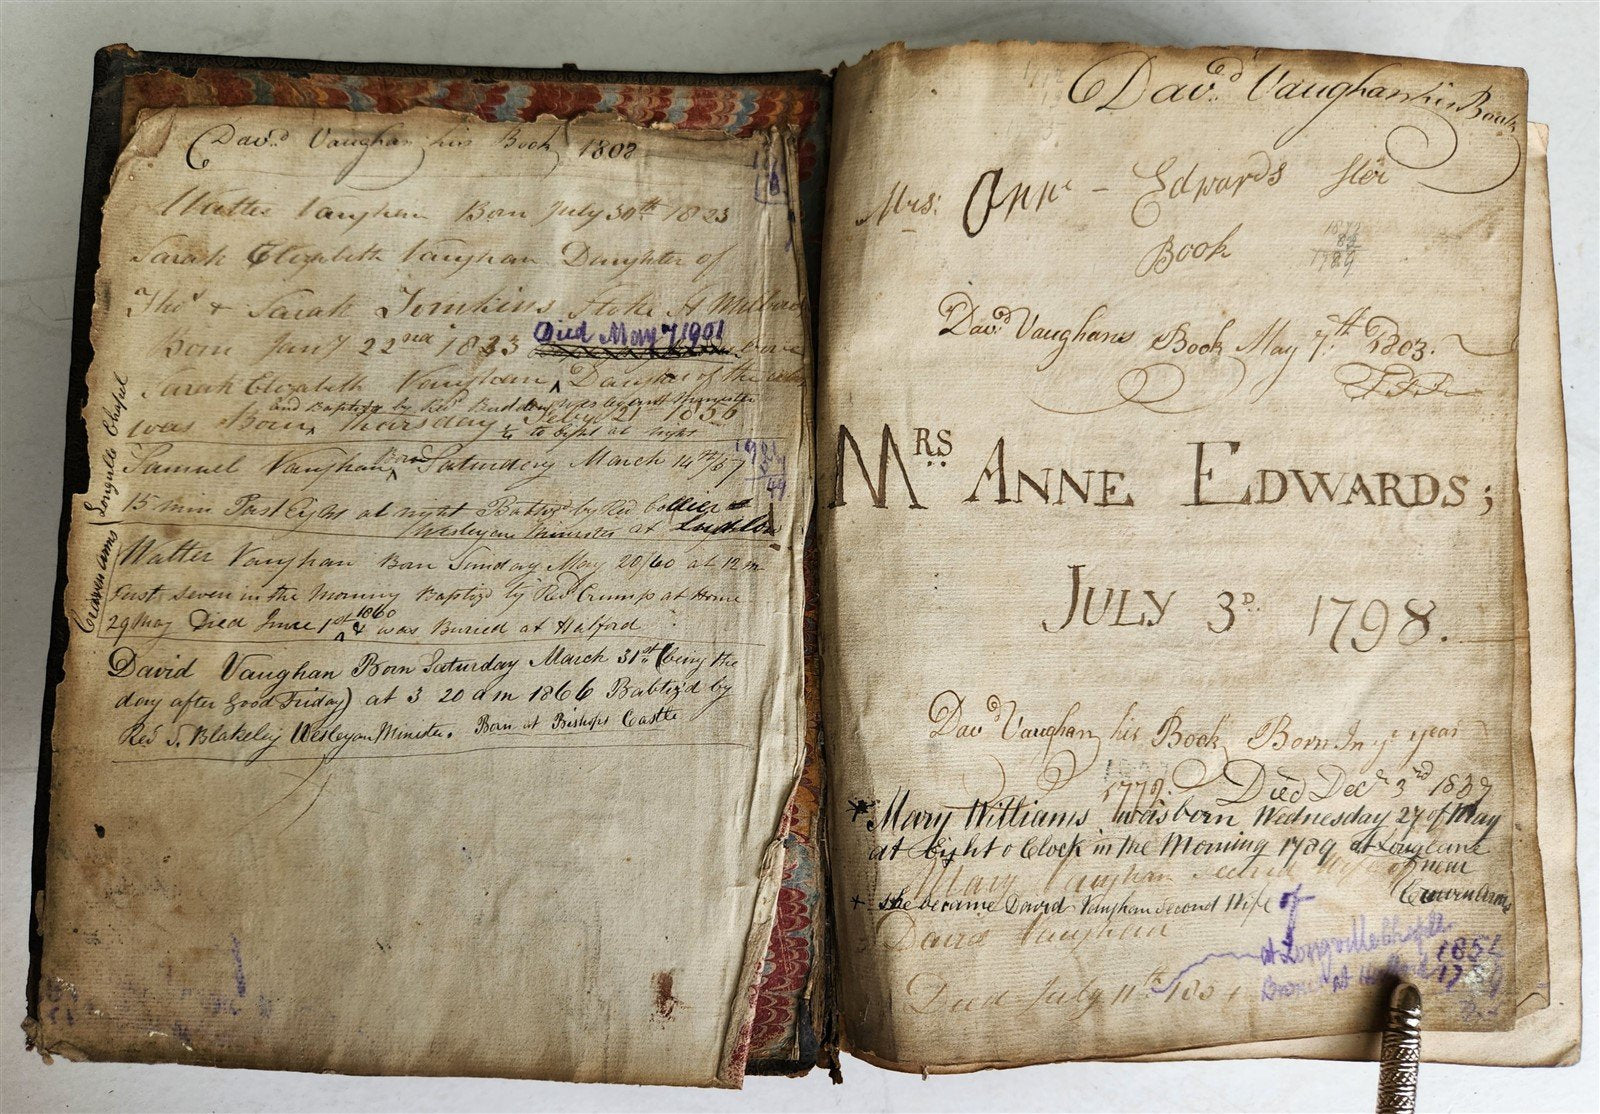 Dav.d Vaughan his Book 1802
Walter Vaughan Born July 30th 1823
Sarah Elizabeth Vaughan Daughter of
Thos & Sarah Tomkins Stoke St Milboro
Born Jany 22nd 1833 Died May 7 1901
Sarah Elizabeth Vaughan ^ Daughter of the above
and Baptiz'd by Revd Wesleyan Minister
was Born ^ Thursday 21 1856
to Eight at night
Samuel Vaughan Born ^ Saturday March 14th/57
15 min Past Eight at night Baptiz'd by Rev Collier
Wesleyan Minister at Ludlow
Walter Vaughan Born Sunday May 20/60 at 12 m
Past seven in the Morning Baptiz'd by Rev Crump at Home
29 May Died June 1st 1860 ^ & was Buried at Halford
David Vaughan Born Saturday March 31st (being the
day after Good Friday) at 3 20 a m 1866 Babtiz'd by
Rev S. Blakeley Wesleyan Minister. Born at Bishops Castle
Craven arms Longville Chapel
Dav.d Vaughan his Book
Mrs: Ann - Edwards Her
Book
Dav.d Vaughans Book May 7th 1803.
MRS ANNE EDWARDS;
JULY 3D. 1798.
Dav.d Vaughan his Book Born In ye year
1779. Died Decr 3rd 1837
* Mary Williams was born Wednesday 27 of May
at Eyht o Clock in the Morning 1789 at Longlane
Mary Vaughan Second Wife of near
+ she became David Vaughan Second Wife of Cravenarms
David Vaughan
at Longville Chapell 1854
Born at 1789
Died July 11th 1854